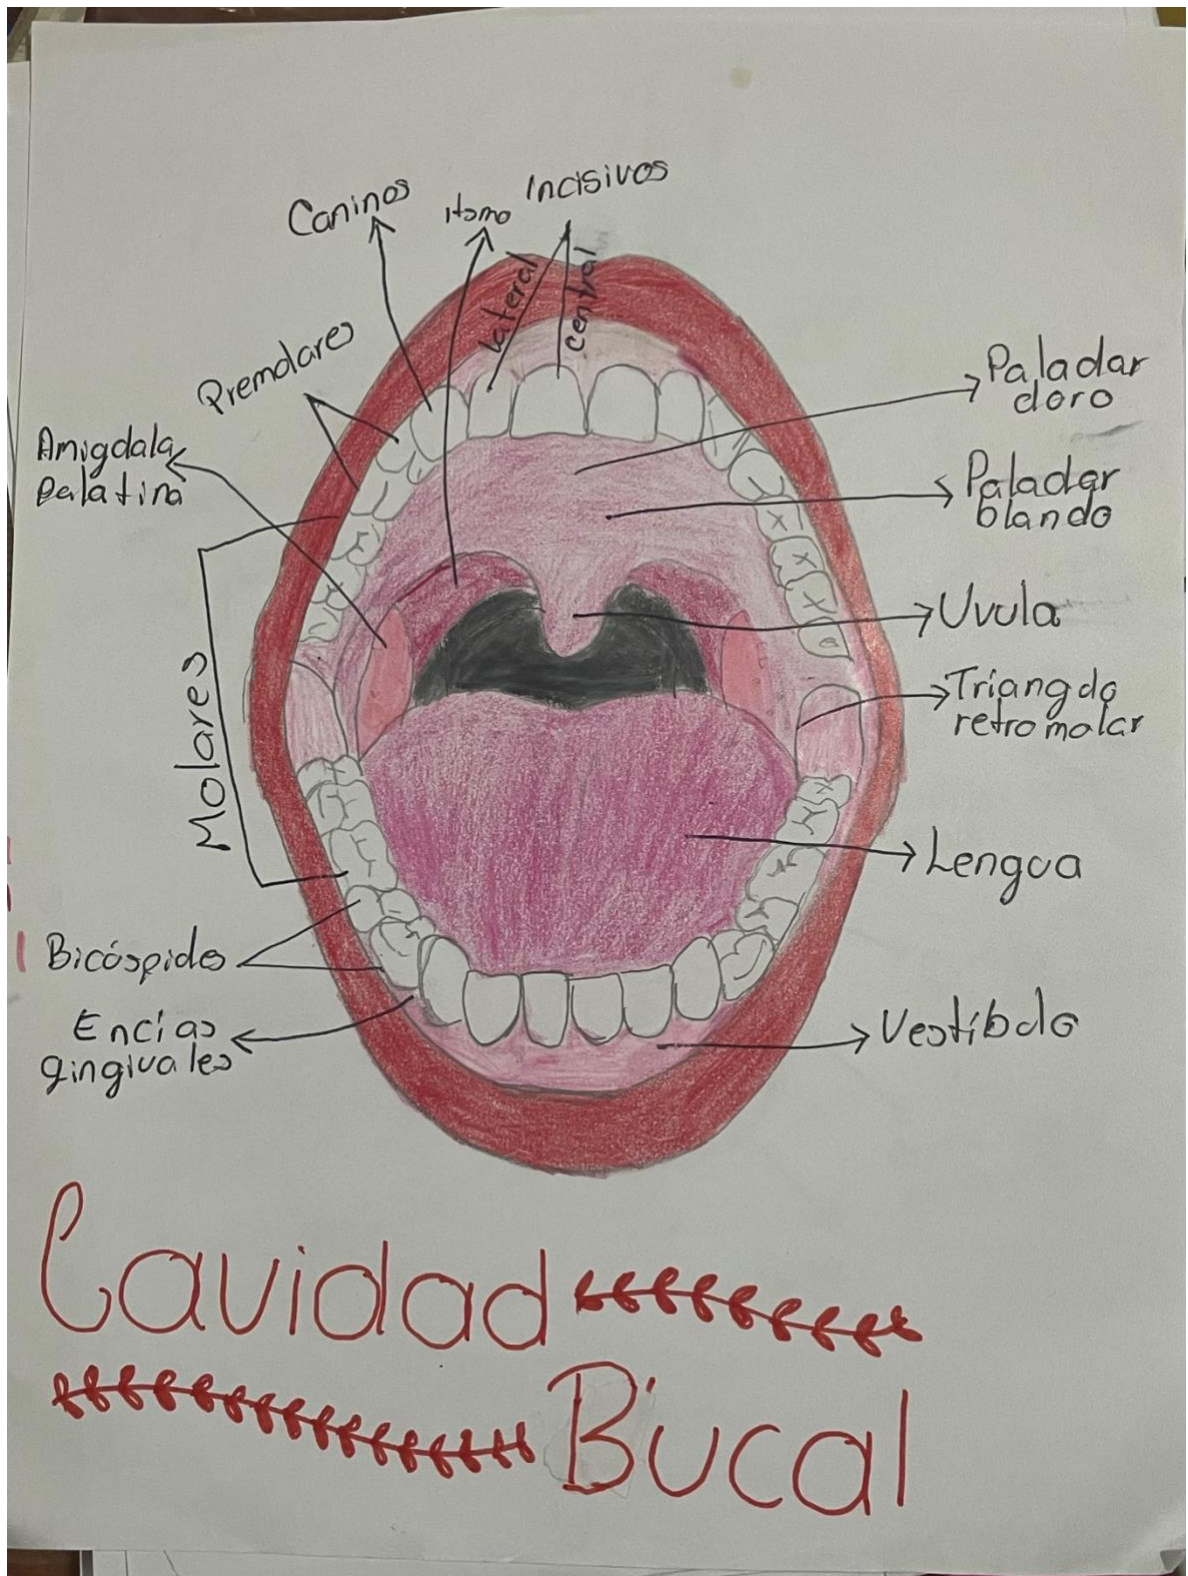 Caninos
Itsmo
Incisivos
lateral
central
Premolares
Amigdala
palatina
Paladar
duro
Paladar
blando
Uvula
Triangulo
retromolar
Molares
Lengua
Bicúspides
Encías
gingivales
Vestíbulo
Cavidad
Bucal